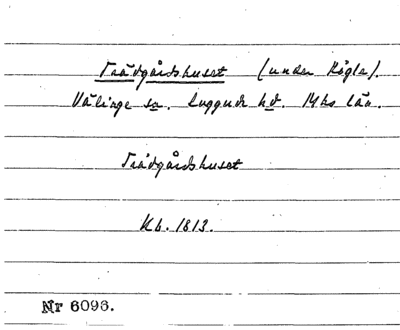 Trädgårdshuset (under Rögle).
Välinge sn. Luggude hd. Mhs län.
Trädgårdshuset
Kb. 1813.
Nr 6096.